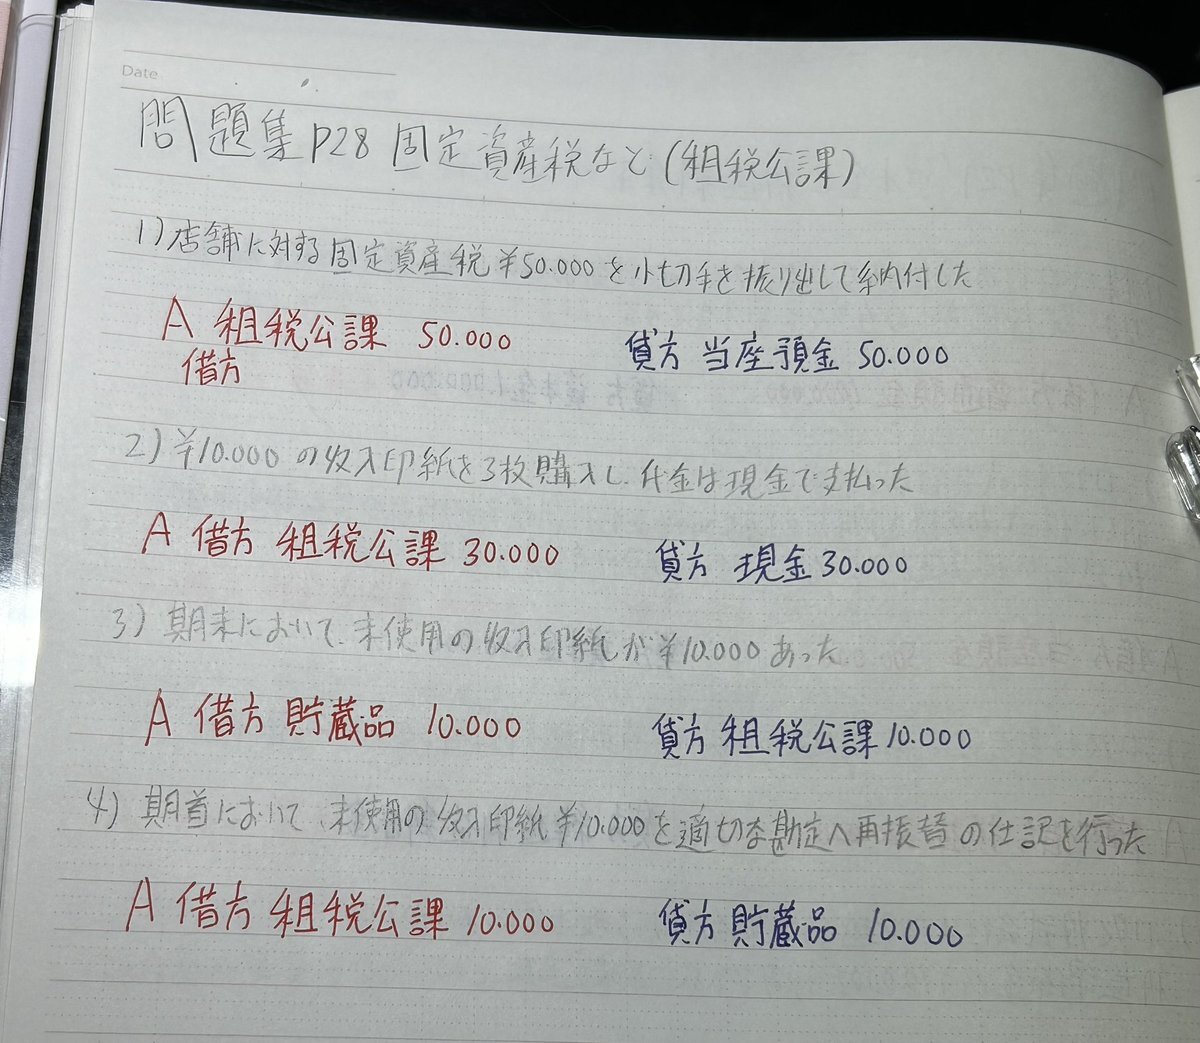 Date
問題集P28 固定資産税など(租税公課)
1)店舗に対する固定資産税¥50.000を小切手を振り出して納付した
A 租税公課 50.000 貸方 当座預金 50.000
借方
2)¥10.000の収入印紙を3枚購入し、代金は現金で支払った
A 借方 租税公課 30.000 貸方 現金 30.000
3)期末において、未使用の収入印紙が¥10.000あった
A 借方 貯蔵品 10.000 貸方 租税公課 10.000
4)期首において、未使用の収入印紙¥10.000を適切な勘定へ再振替の仕記を行った
A 借方 租税公課 10.000 貸方 貯蔵品 10.000